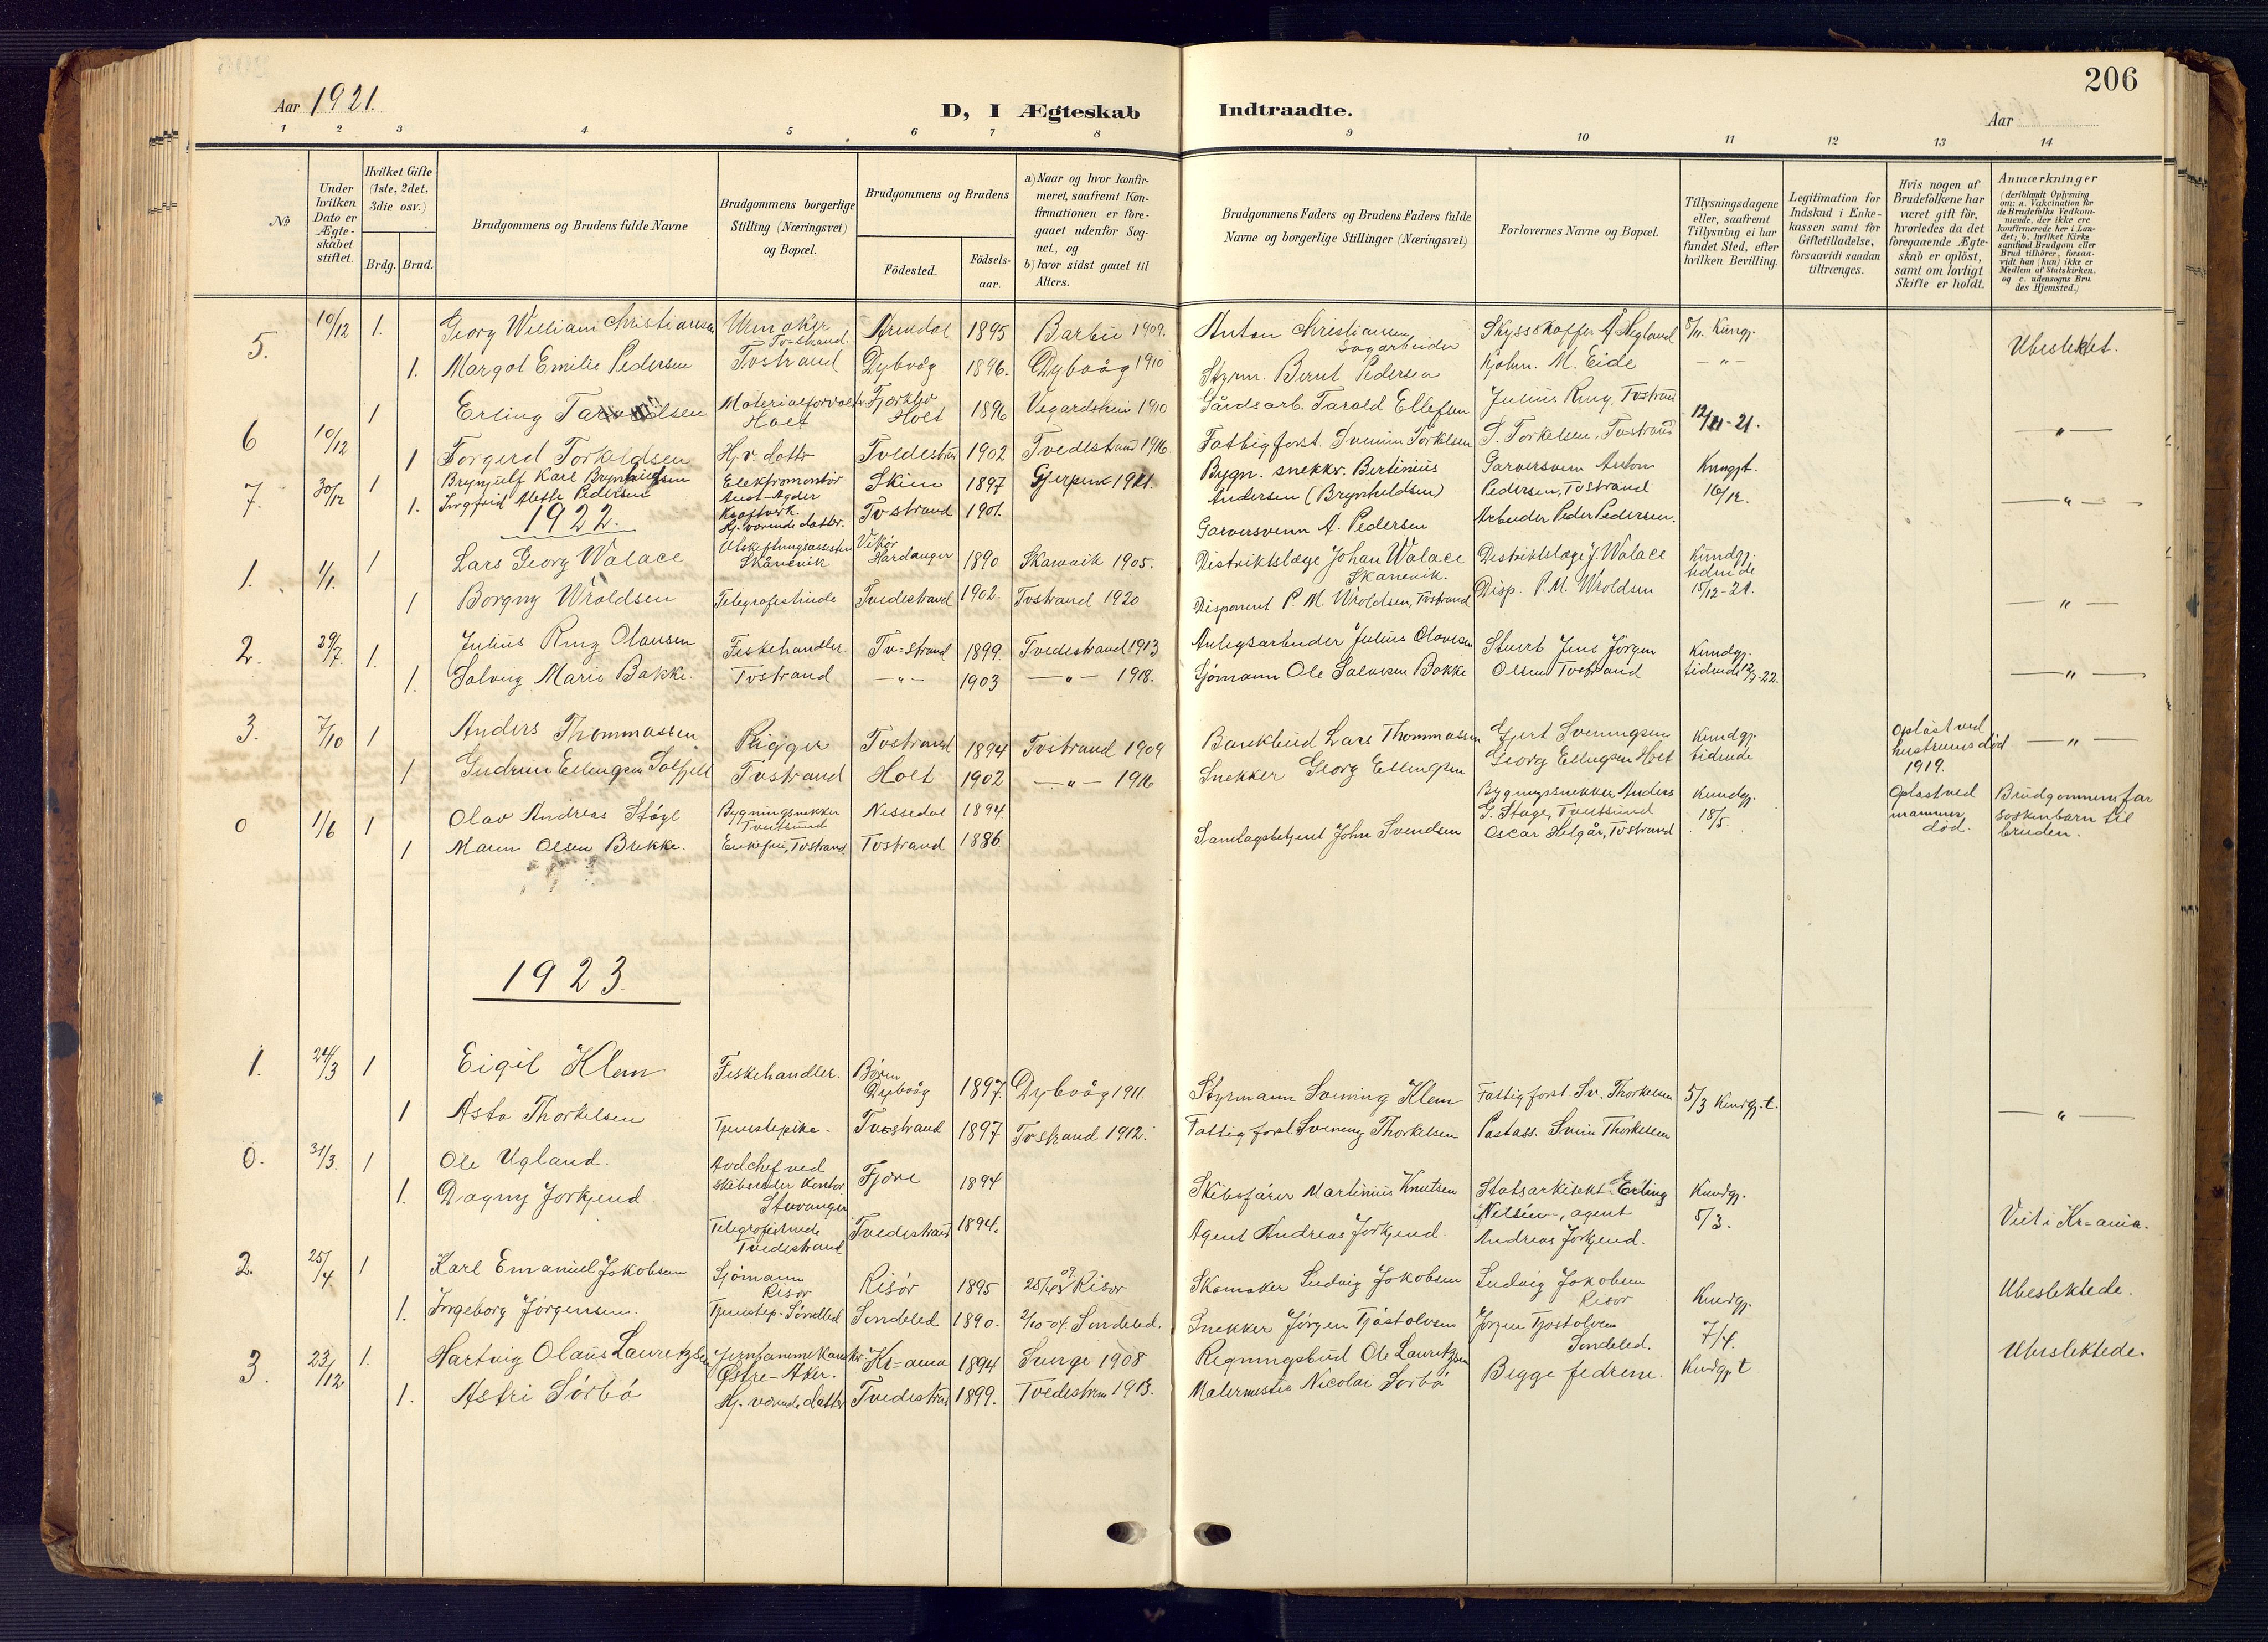 206
Aar 1921.
D, I Ægteskab Indtraadte.
Aar
1 2 3 4 5 6 7 8 9 10 11 12 13 14
No
Under hvilken Dato er Ægte-skabet stiftet.
Hvilket Gifte (1ste, 2det, 3die osv.)
Brdg. Brud.
Brudgommens og Brudens fulde Navne
Brudgommens borgerlige Stilling (Næringsvei) og Bopæl.
Brudgommens og Brudens
Födested.
Födsels-aar.
a) Naar og hvor konfir-meret, saafremt Kon-firmationen er fore-gaaet udenfor Sog-net, og
b) hvor sidst gaaet til Alters.
Brudgommens Faders og Brudens Faders fulde Navne og borgerlige Stillinger (Næringsvei)
Forlovernes Navne og Bopæl.
Tillysningsdagene eller, saafremt Tillysning ei har fundet Sted, efter hvilken Bevilling.
Legitimation for Indskud i Enke-kassen samt for Giftetilladelse, forsaavidt saadan tiltrænges.
Hvis nogen af Brudefolkene har været gift för, hvorledes da det foregaaende Ægte-skab er oplöst, samt om lovligt Skifte er holdt.
Anmærkninger
(deriblandt Oplysning om: a. Vakcination for de Brudefolks Vedkom-mende, der ikke ere konfirmerede her i Lan-det; b. hvilket Kirke samfund Brudgom eller Brud tilhører, forsaa-vidt han (hun) ikke er Medlem af Statskirken, og c. udensogns Bru des Hjemsted.)
5. 10/12 1. Georg William Christiansen Urmaker Tv-strand. Arendal 1895 Barbu 1909. Anton Christiansen, Sagarbeider Skyssskaffer A. Ugland 8/11. Kungj. Ubeslektet.
1. Margot Emilie Pedersen Tvstrand Dybvåg 1896. Dybvåg 1910 Styrm. Bernt Pedersen Kjøbm. M. Eide — " —
6 10/12 1 Erling Olsen Materialforvalter Holt Holt 1896 Vegårdshei 1910 Gårdsarb. Tarald Ellefsen Julius Ring, Tvstrand 12/11-21. — " —
1 Torgerd Torkildsen Hj.v. datter Tvedestrand 1902 Tvedestrand 1916. Fattigforst. Svenum Torkelsen S. Torkelsen, Tvstrand
7. 30/12 1 Brynjulf Karl Brynhildsen Elektromontør Aust-Agder Kraftverk. Skien 1897 Gjerpen 1911. Bygn. snekker. Bertinius Andersen (Brynhildsen) Garversvenn Anton Pedersen, Tvstrand Kungjt. 16/12. — " —
1. Ingfrid Alette Pedersen Hj. værende datter. Tvstrand 1901. Garversvenn A. Pedersen Arbeider Peder Pedersen.
1922.
1. 1/1. 1 Lars Georg Walace Utskiftningsassistent Skånevik Vikør Hardanger 1890 Skånevik 1905. Distriktslæge Johan Walace Skånevik. Distriktslæge J. Walace Kundgj. tidende 15/12-21. — " —
1 Borgny Wroldsen Telegrafistinde Tvedestrand 1902. Tvstrand 1920 Disponent P. M. Wroldsen, Tvstrand Disp. P. M. Wroldsen
2. 29/7. 1. Julius Ring Olausen Fiskehandler Tv-strand 1899. Tvedestrand 1913 Anlegsarbeider Julius Olavesen Stuert Jens Jørgen Kundgj. — " —
1. Solveig Marie Bakke. Tvstrand — " — 1903 — " — 1918. Sjømann Ole Salvesen Bakke Olsen Tvstrand tidende 12/7-22.
3. 7/10 1 Anders Thommassen Rigger Tvstrand 1894 Tvstrand 1909 Bankbud Lars Thommassen Gjert Sveningsen Kundgj. tidende Opløst ved hustruens død 1919. — " —
1 Gudrun Ellingsen Solfjeld Tvstrand Holt 1902 — " — 1916 Snekker Georg Ellingsen Georg Ellingsen Holt
0 1/6 1 Olav Andreas Støyl Bygningssnekker Treutsund Nissedal 1894. Bygningssnekker Anders G. Stage, Treutsund Kundgj. 18/5. Opløst ved mannens død. Brudgommens far søskenbarn til bruden.
1 Maren Olsen Brekke. Enkefru, Tvstrand Tvstrand 1886 Samlagsbetjent John Svendsen Oscar Helgår, Tvstrand
1923.
1. 24/3 1 Eigil Klem Fiskehandler. Dybvåg 1897. Dybvåg 1911. Styrmann Svening Klem Fattigforst. Sv. Thorkelsen 5/3 Kundgj.t. — " —
1 Asta Thorkelsen Tjenestepike. Tv-strand 1897 Tvstrand 1912. Fattigforst. Svenung Thorkelsen Postass. Svein Thorkelsen
0. 31/3. 1 Ole Ugland. Avd.chef ved skibsreder kontor Stavanger Fjære 1894 Skibsfører Martinius Knutsen Statsarkitekt Erling Nielsen, agent Kundgj. 5/3. Viet i Kr-ania.
1. Dagny Jorkjend Telegrafistinde Tvedestrand Tvedestrand 1894. Agent Andreas Jorkjend. Andreas Jorkjend.
2. 25/4 1 Karl Emanuel Jakobsen Sjømann Risør Risør 1895 Risør Skomaker Ludvig Jakobsen Ludvig Jakobsen Risør Kundgj. 7/4. Ubeslektede.
1. Ingeborg Jørgensen. Tjenestep. Søndled Søndeled 1890. 2/10-04. Søndeled. Snekker Jørgen Tjøstolvsen Jørgen Tjøstolvsen Søndeled.
3. 23/12 1. Hartvig Olaus Lauretzsen Jernbanemekaniker Østre-Aker. Kr-ania 1894 1908 Regningsbud Ole Lauritzsen Begge fedrene. Kundgjt Ubeslektede.
1. Astri Sørbø Hj. værende datter Tvedestrand 1899. Tvedestran 1913. Malermester Nicolai Sørbø